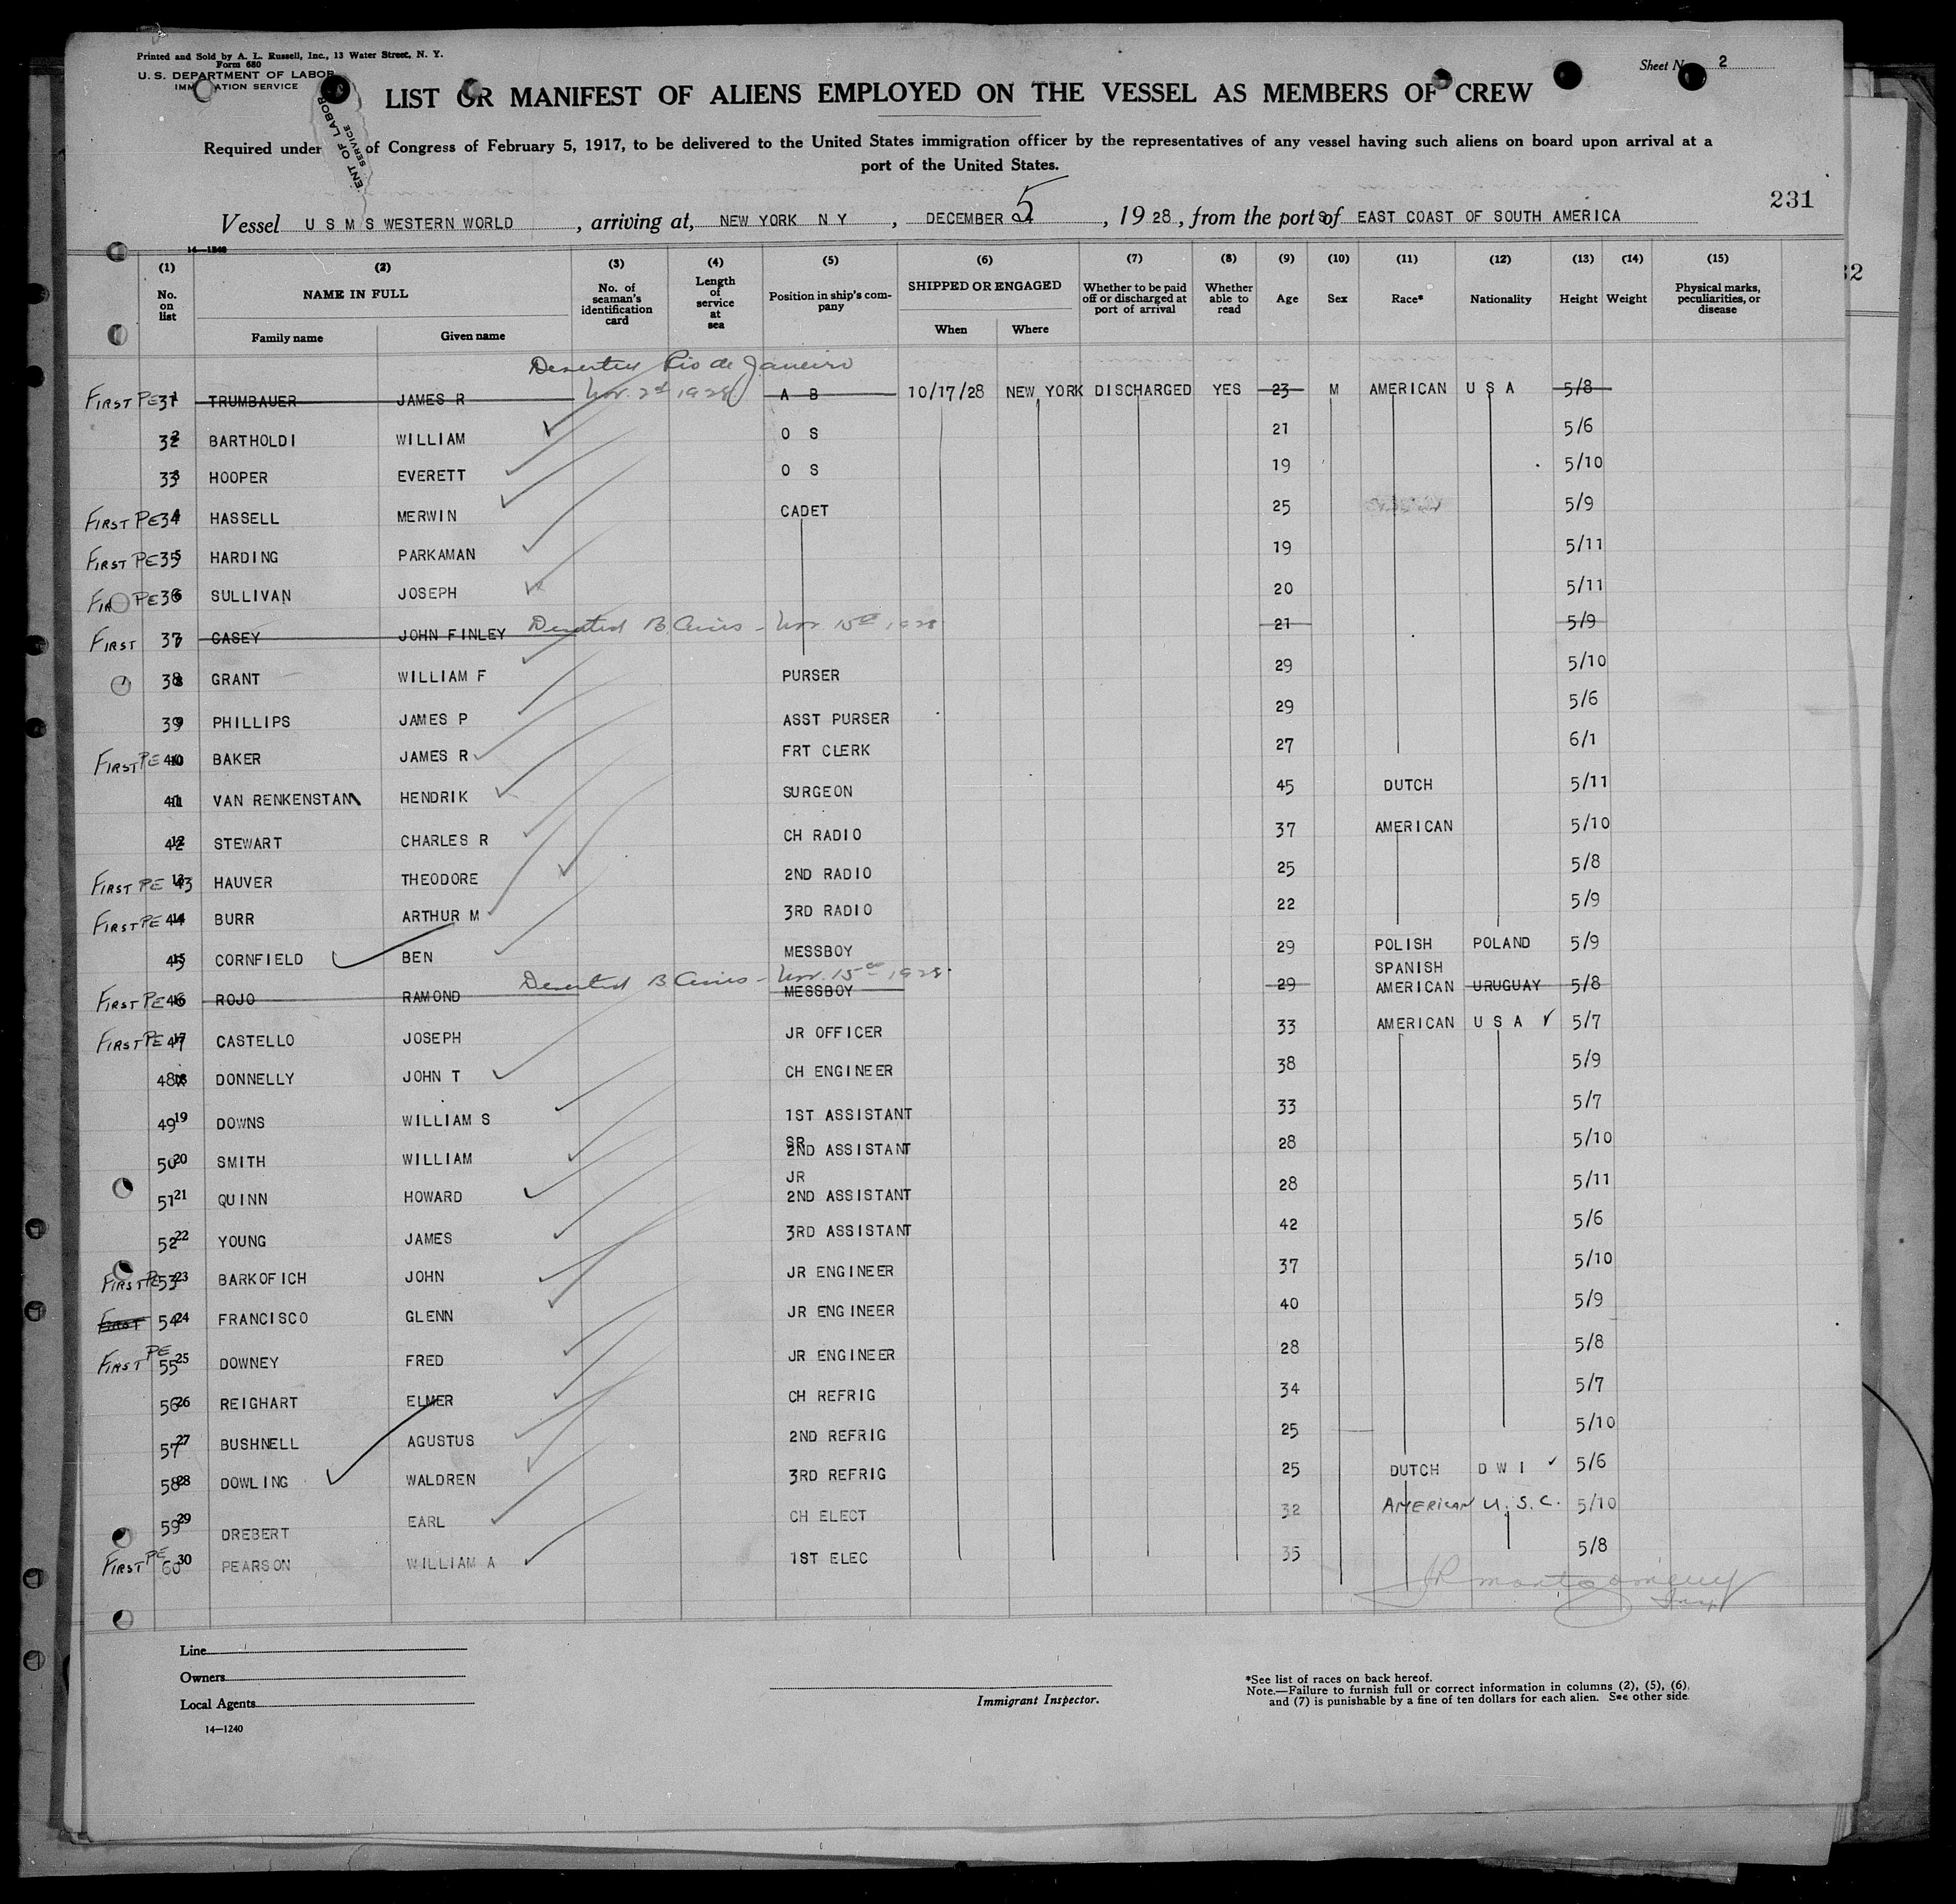 Printed and Sold by A. L. Russell, Inc., 13 Water Street, N. Y.
Form 680
U. S. DEPARTMENT OF LABOR
IMMIGRATION SERVICE
ENT OF LABOR
SERVICE
Sheet No. 2
LIST OR MANIFEST OF ALIENS EMPLOYED ON THE VESSEL AS MEMBERS OF CREW
Required under of Congress of February 5, 1917, to be delivered to the United States immigration officer by the representatives of any vessel having such aliens on board upon arrival at a
port of the United States.
231
Vessel U S M S WESTERN WORLD, arriving at, NEW YORK N Y, DECEMBER 5, 1928, from the ports of EAST COAST OF SOUTH AMERICA
14-1240
(1) (2) (3) (4) (5) (6) (7) (8) (9) (10) (11) (12) (13) (14) (15)
No. on list NAME IN FULL Family name Given name No. of seaman's identification card Length of service at sea Position in ship's company SHIPPED OR ENGAGED When Where Whether to be paid off or discharged at port of arrival Whether able to read Age Sex Race* Nationality Height Weight Physical marks, peculiarities, or disease
Deserted Rio de Janeiro
Nov. 2nd 1928
FIRST PE 31 TRUMBAUER JAMES R A B 10/17/28 NEW YORK DISCHARGED YES 23 M AMERICAN U S A 5/8
32 BARTHOLDI WILLIAM O S 21 5/6
33 HOOPER EVERETT O S 19 5/10
FIRST PE 34 HASSELL MERWIN CADET 25 5/9
FIRST PE 35 HARDING PARKAMAN 19 5/11
PE 36 SULLIVAN JOSEPH 20 5/11
FIRST 37 CASEY JOHN FINLEY Deserted B Aires - Nov 15th 1928 21 5/9
38 GRANT WILLIAM F PURSER 29 5/10
39 PHILLIPS JAMES P ASST PURSER 29 5/6
FIRST PE 40 BAKER JAMES R FRT CLERK 27 6/1
41 VAN RENKENSTAN HENDRIK SURGEON 45 DUTCH 5/11
42 STEWART CHARLES R CH RADIO 37 AMERICAN 5/10
FIRST PE 43 HAUVER THEODORE 2ND RADIO 25 5/8
FIRST PE 44 BURR ARTHUR M 3RD RADIO 22 5/9
45 CORNFIELD BEN MESSBOY 29 POLISH POLAND 5/9
Deserted B Aires - Nov. 15th 1928.
FIRST PE 46 ROJO RAMOND MESSBOY 29 SPANISH AMERICAN URUGUAY 5/8
FIRST PE 47 CASTELLO JOSEPH JR OFFICER 33 AMERICAN U S A 5/7
48 DONNELLY JOHN T CH ENGINEER 38 5/9
49 19 DOWNS WILLIAM S 1ST ASSISTANT 33 5/7
50 20 SMITH WILLIAM SR 2ND ASSISTANT 28 5/10
51 21 QUINN HOWARD JR 2ND ASSISTANT 28 5/11
52 22 YOUNG JAMES 3RD ASSISTANT 42 5/6
FIRST PE 53 23 BARKOFICH JOHN JR ENGINEER 37 5/10
FIRST 54 24 FRANCISCO GLENN JR ENGINEER 40 5/9
FIRST PE 55 25 DOWNEY FRED JR ENGINEER 28 5/8
56 26 REIGHART ELMER CH REFRIG 34 5/7
57 27 BUSHNELL AGUSTUS 2ND REFRIG 25 5/10
58 28 DOWLING WALDREN 3RD REFRIG 25 DUTCH D W I 5/6
59 29 DREBERT EARL CH ELECT 32 AMERICAN U. S. C. 5/10
FIRST PE 60 30 PEARSON WILLIAM A 1ST ELEC 35 5/8
JR Montgomery
Insp
Line
Owners
Local Agents
14-1240
Immigrant Inspector.
*See list of races on back hereof.
Note.—Failure to furnish full or correct information in columns (2), (5), (6),
and (7) is punishable by a fine of ten dollars for each alien. See other side.